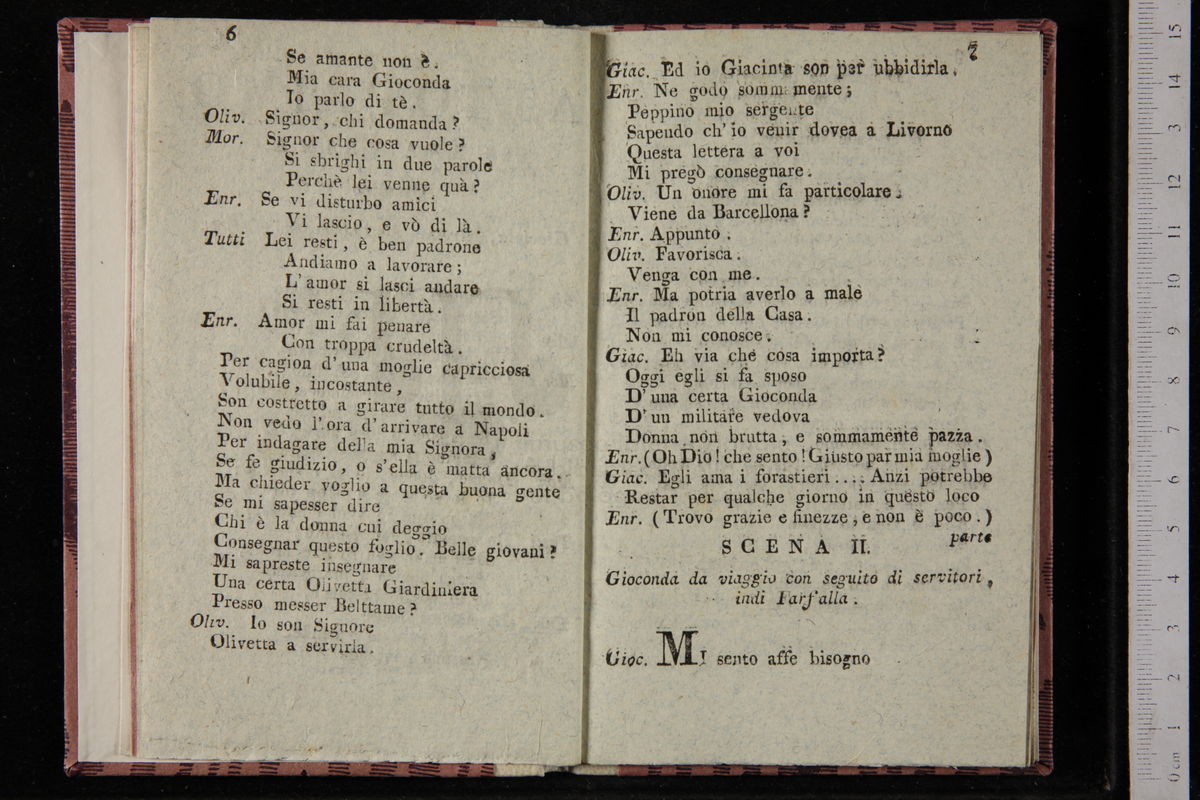 6
Se amante non è.
Mia cara Gioconda
Io parlo di tè.
Oliv. Signor, chi domanda?
Mor. Signor che cosa vuole?
Si sbrighi in due parole
Perchè lei venne quà?
Enr. Se vi disturbo amici
Vi lascio, e vò di là.
Tutti Lei resti, è ben padrone
Andiamo a lavorare;
L'amor si lasci andare
Si resti in libertà.
Enr. Amor mi fai penare
Con troppa crudeltà.
Per cagion d'una moglie capricciosa
Volubile, incostante,
Son costretto a girare tutto il mondo.
Non vedo l'ora d'arrivare a Napoli
Per indagare della mia Signora,
Se fe giudizio, o s'ella è matta ancora.
Ma chieder voglio a questa buona gente
Se mi sapesser dire
Chi è la donna cui deggio
Consegnar questo foglio. Belle giovani?
Mi sapreste insegnare
Una certa Olivetta Giardiniera
Presso messer Belttame?
Oliv. Io son Signore
Olivetta a servirla.
7
Giac. Ed io Giacinta son per ubbidirla.
Enr. Ne godo sommamente;
Peppino mio sergente
Sapendo ch'io venir dovea a Livorno
Questa lettera a voi
Mi pregò consegnare.
Oliv. Un onore mi fa particolare.
Viene da Barcellona?
Enr. Appunto.
Oliv. Favorisca.
Venga con me.
Enr. Ma potria averlo a male
Il padron della Casa.
Non mi conosce.
Giac. Eh via che cosa importa?
Oggi egli si fa sposo
D'una certa Gioconda
D'un militare vedova
Donna non brutta, e sommamente pazza.
Enr. (Oh Dio! che sento! Giusto par mia moglie)
Giac. Egli ama i forastieri.... Anzi potrebbe
Restar per qualche giorno in questo loco
Enr. (Trovo grazie e finezze, e non è poco.)
parte
SCENA II.
Gioconda da viaggio con seguito di servitori,
indi Farfalla.
Gioc. MI sento affè bisogno
0 cm 1 2 3 4 5 6 7 8 9 10 11 12 3 14 15